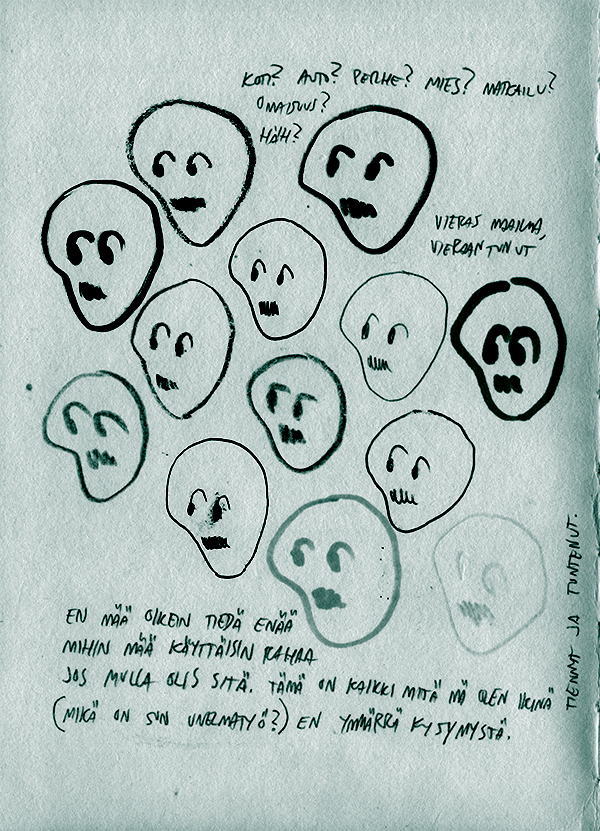 KOTI? AUTO? PERHE? MIES? MATKAILU?
OMAISUUS?
HÄH?
VIERAS MAAILMA,
VIERAANTUNUT
EN MÄÄ OIKEIN TIEDÄ ENÄÄ
MIHIN MÄÄ KÄYTTÄISIN RAHAA
JOS MULLA OLIS SITÄ. TÄMÄ ON KAIKKI MITÄ MÄ OLEN IKINÄ
(MIKÄ ON SUN UNELMATYÖ?) EN YMMÄRRÄ KYSYMYSTÄ.
TIENNY JA TUNTENUT.